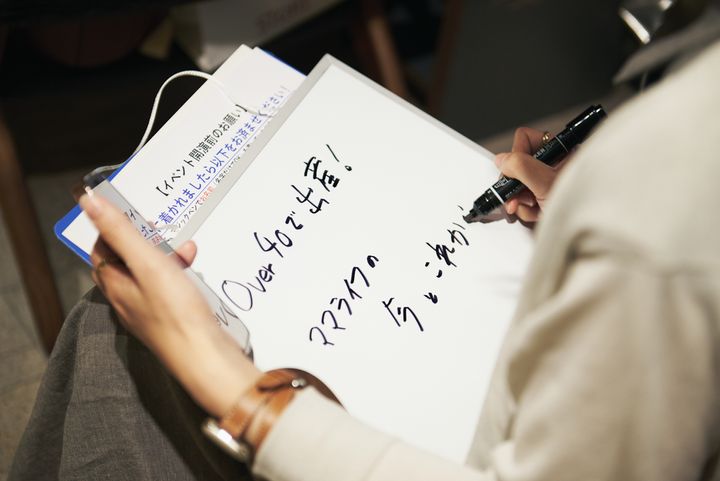 【イベント開演前のお願い】
着かれましたら以下をお済ませください!
Over 40で出産!
ママライフの
今とこれが